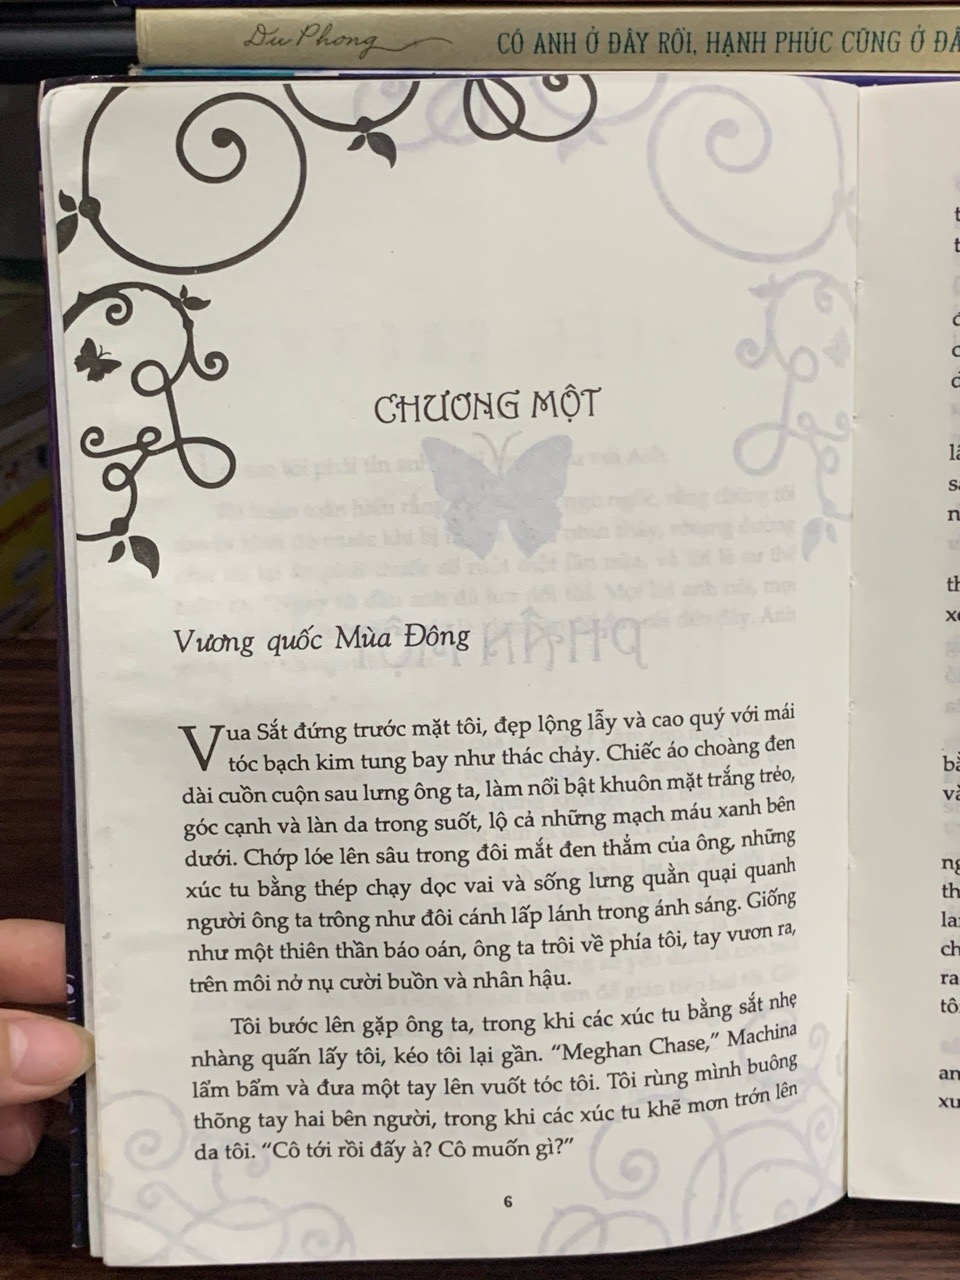 Du Phong
CÓ ANH Ở ĐÂY RỒI, HẠNH PHÚC CŨNG Ở
CHƯƠNG MỘT
Vương quốc Mùa Đông
Vua Sắt đứng trước mặt tôi, đẹp lộng lẫy và cao quý với mái
tóc bạch kim tung bay như thác chảy. Chiếc áo choàng đen
dài cuồn cuộn sau lưng ông ta, làm nổi bật khuôn mặt trắng trẻo,
góc cạnh và làn da trong suốt, lộ cả những mạch máu xanh bên
dưới. Chớp lóe lên sâu trong đôi mắt đen thẳm của ông, những
xúc tu bằng thép chạy dọc vai và sống lưng quằn quại quanh
người ông ta trông như đôi cánh lấp lánh trong ánh sáng. Giống
như một thiên thần báo oán, ông ta trôi về phía tôi, tay vươn ra,
trên môi nở nụ cười buồn và nhân hậu.
Tôi bước lên gặp ông ta, trong khi các xúc tu bằng sắt nhẹ
nhàng quấn lấy tôi, kéo tôi lại gần. “Meghan Chase,” Machina
lẩm bẩm và đưa một tay lên vuốt tóc tôi. Tôi rùng mình buông
thõng tay hai bên người, trong khi các xúc tu khẽ mơn trớn lên
da tôi. “Cô tới rồi đấy à? Cô muốn gì?”
6